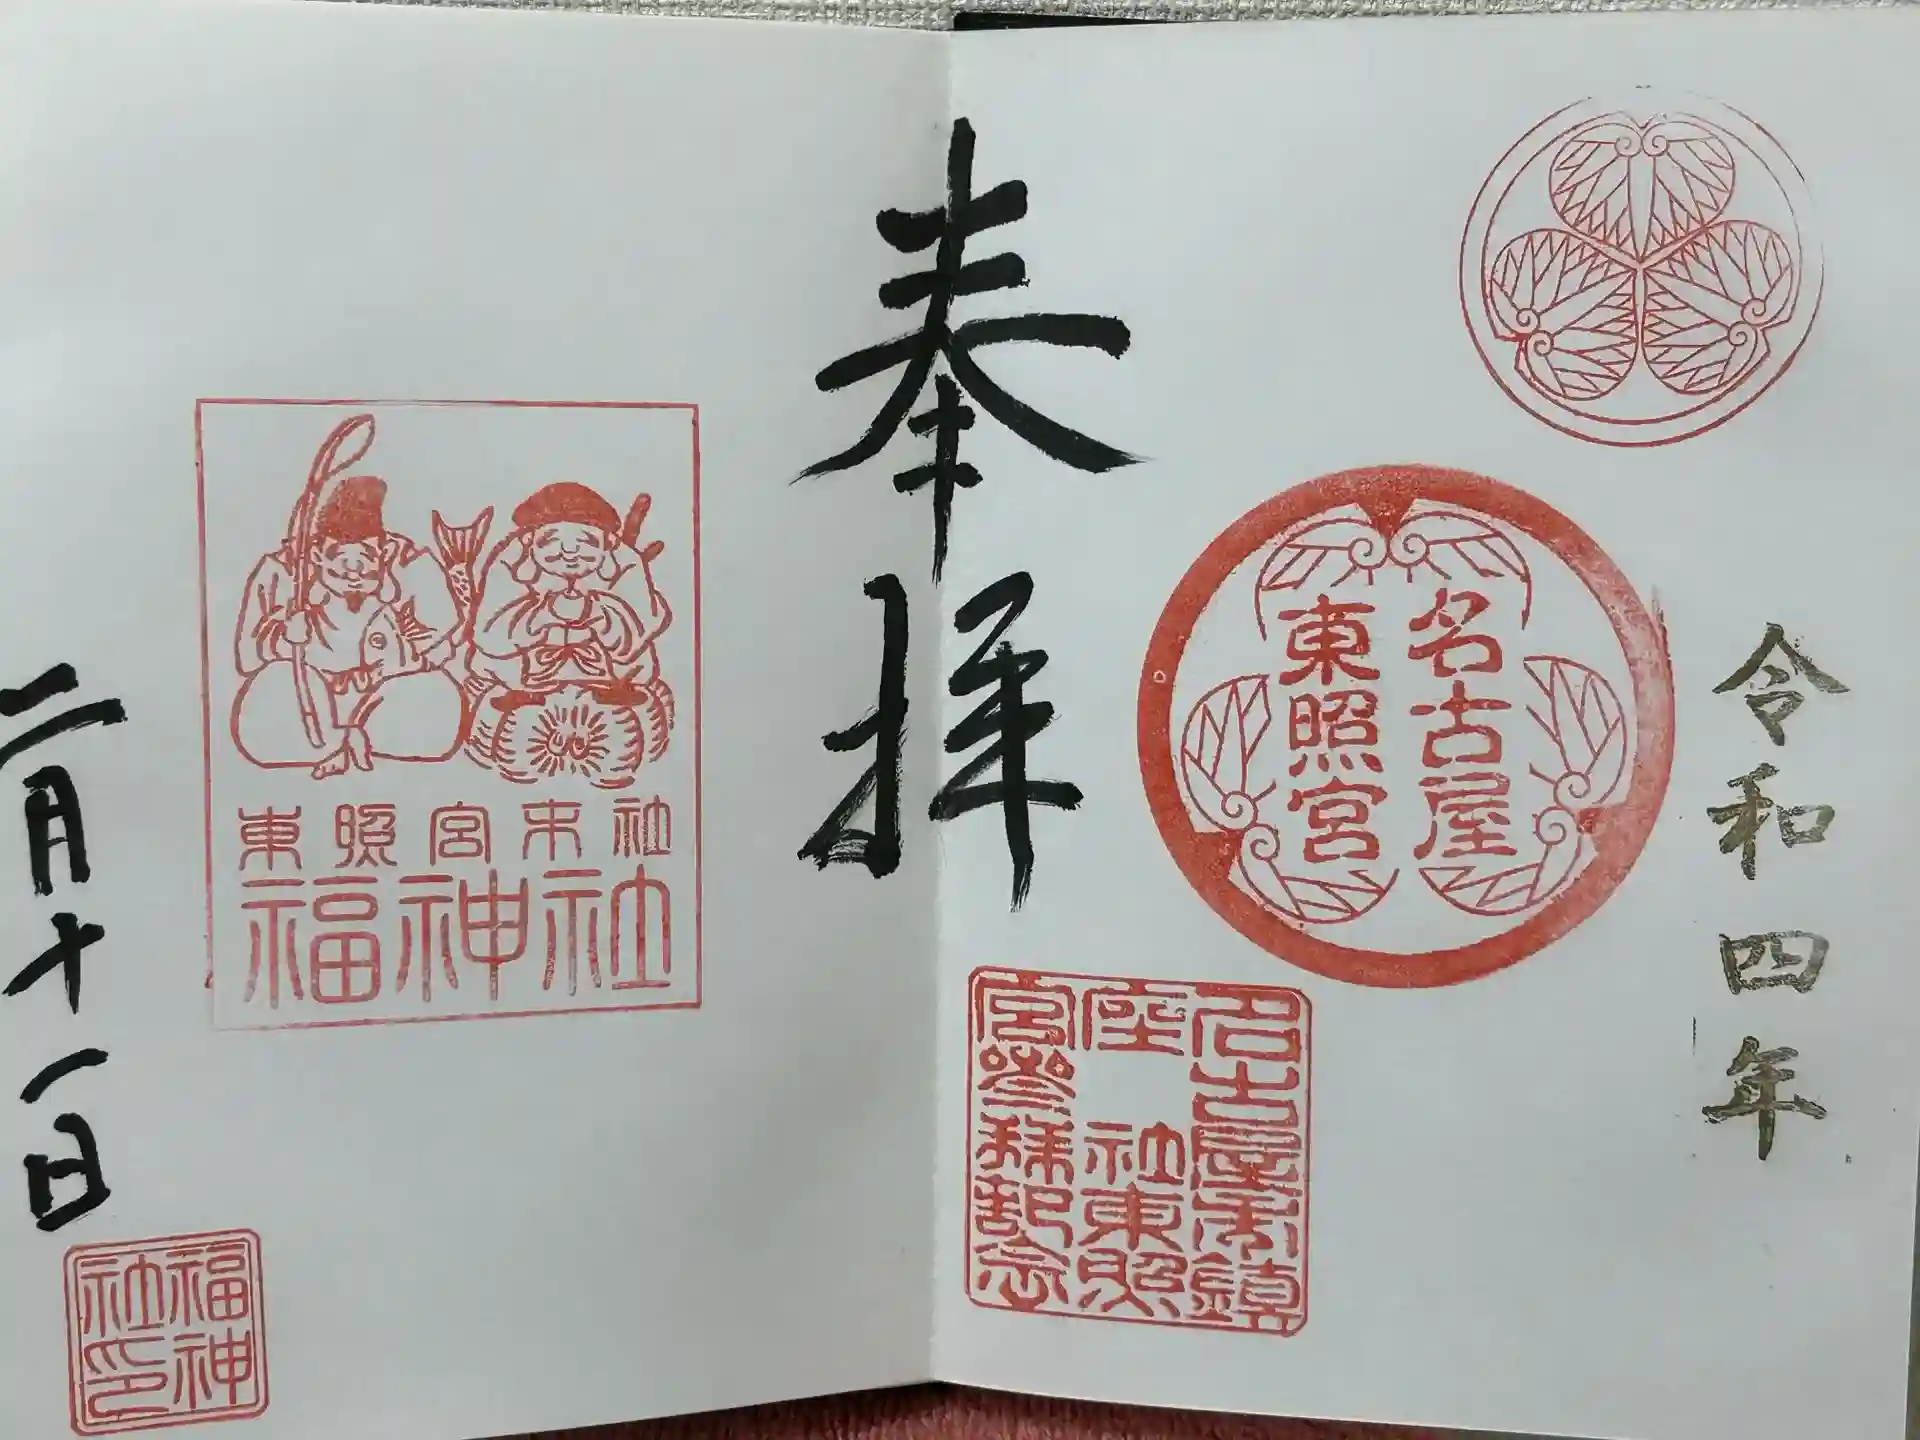 令和四年
名古屋
東照宮
名古屋市鎮
座 社東照
宮参拝記念
奉拝
東照宮末社
福神社
二月十一日
福神
社印